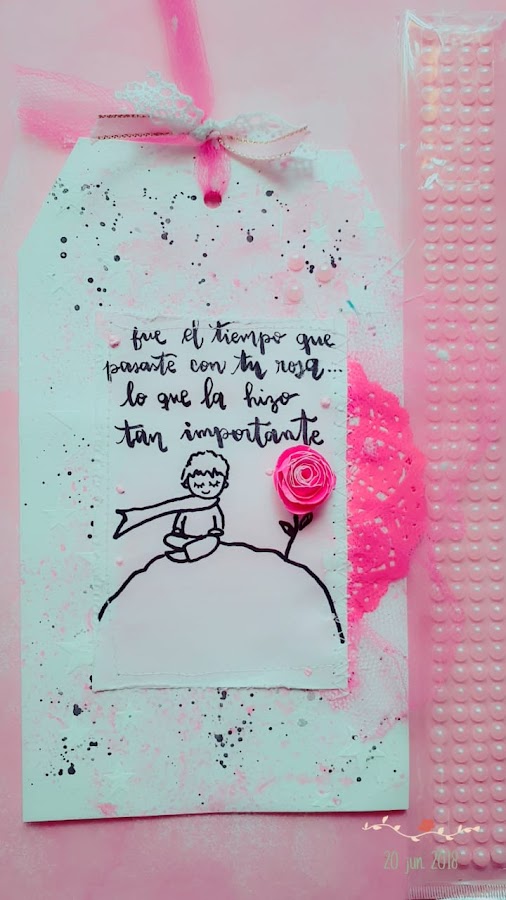 fue el tiempo que
pasaste con tu rosa...
lo que la hizo
tan importante
20 jun. 2018